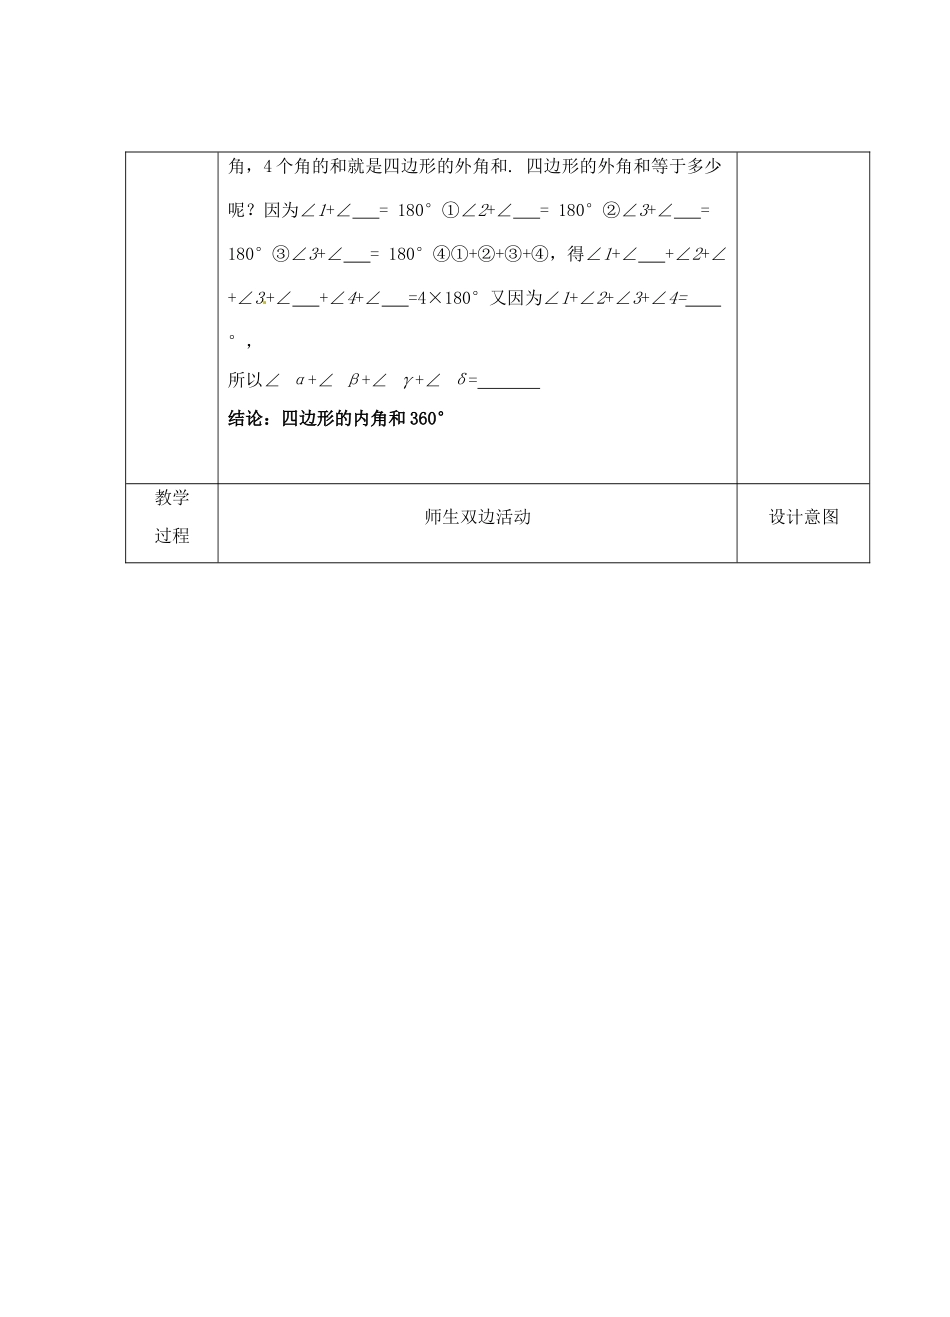 角，4 个角的和就是四边形的外角和. 四边形的外角和等于多少
呢？因为∠1+∠___= 180°①∠2+∠___= 180°②∠3+∠___=
180°③∠3+∠___= 180°④①+②+③+④，得∠1+∠___+∠2+∠
+∠3+∠___+∠4+∠___=4×180°又因为∠1+∠2+∠3+∠4=____
°，
所以∠ α+∠ β+∠ γ+∠ δ=_______
结论：四边形的内角和 360°
教学
过程
师生双边活动
设计意图